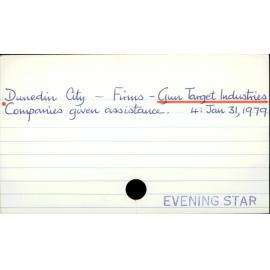 Dunedin City – Firms – Gun Target Industries
Companies given assistance. 4: Jan 31, 1979
EVENING STAR